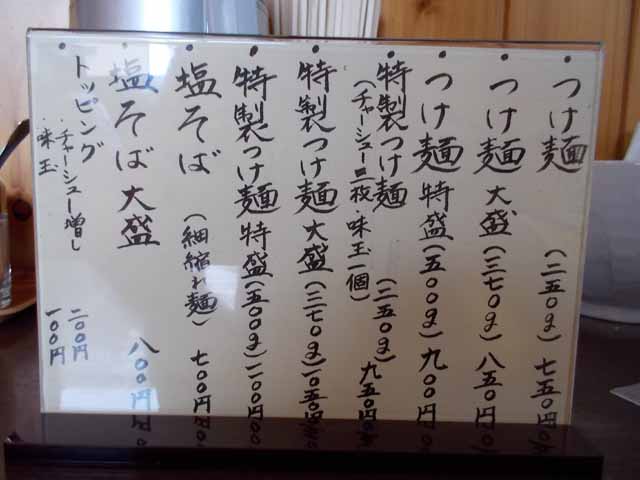 ・つけ麺 (二五〇g) 七五〇円
・つけ麺 大盛 (三七〇g) 八五〇円
・つけ麺 特盛 (五〇〇g) 九〇〇円
・特製つけ麺 (二五〇g) 九五〇円
(チャーシュー二枚・味玉一個)
・特製つけ麺 大盛 (三七〇g) 一〇五〇円
・特製つけ麺 特盛 (五〇〇g) 一一〇〇円
・塩そば (細縮れ麺) 七〇〇円
・塩そば 大盛 八〇〇円
・トッピング
・チャーシュー増し 二〇〇円
・味玉 一〇〇円